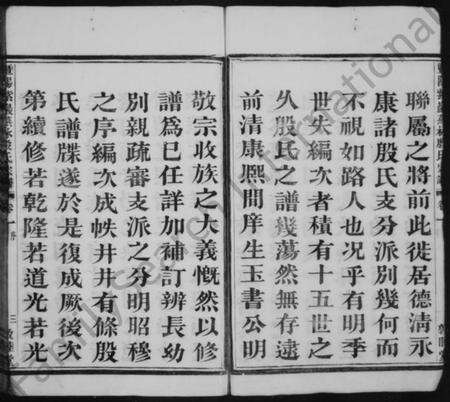 聯屬之將前此徙居德清永
康諸殷氏支分派別幾何而
不視如路人也况乎有明季
世失編次者積有十五世之
久殷氏之譜幾蕩然無存逮
前清康熙間庠生玉書公明
敬宗收族之大義慨然以修
譜為己任詳加補訂辨長幼
別親疏審支派之分明昭穆
之序編次成帙井井有條殷
氏譜牒遂於是復成厥後次
第續修若乾隆若道光若光